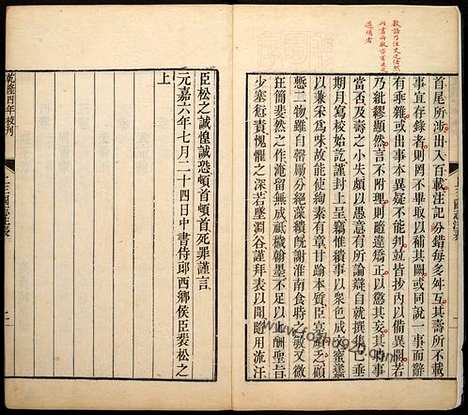 首尾所涉出入百載注記分錯每多舛互其壽所不載
事宜存錄者則罔不畢取以補其闕或同說一事而辭
有乖雜或出事本異疑不能判並皆抄內以備異聞若
乃紕繆顯然言不附理則隨違矯正以懲其妄其時事
當否及壽之小失頗以愚意有所論辯自就撰集已垂
期月寫校始訖謹封上呈竊惟繢事以衆色成文蜜蠭
以兼采爲味故能使絢素有章甘踰本質臣寔頑乏顧
慙二物雖自罄勵分絕藻繢旣謝淮南食時之敏又微
狂簡斐然之作淹留無成祗穢翰墨不足以上酬聖旨
少塞愆責愧懼之深若墜淵谷謹拜表以聞隨用流汗
臣松之誠惶誠恐頓首頓首死罪謹言
元嘉六年七月二十四日中書侍郎西鄉侯臣裴松之
上
乾隆四年校刊